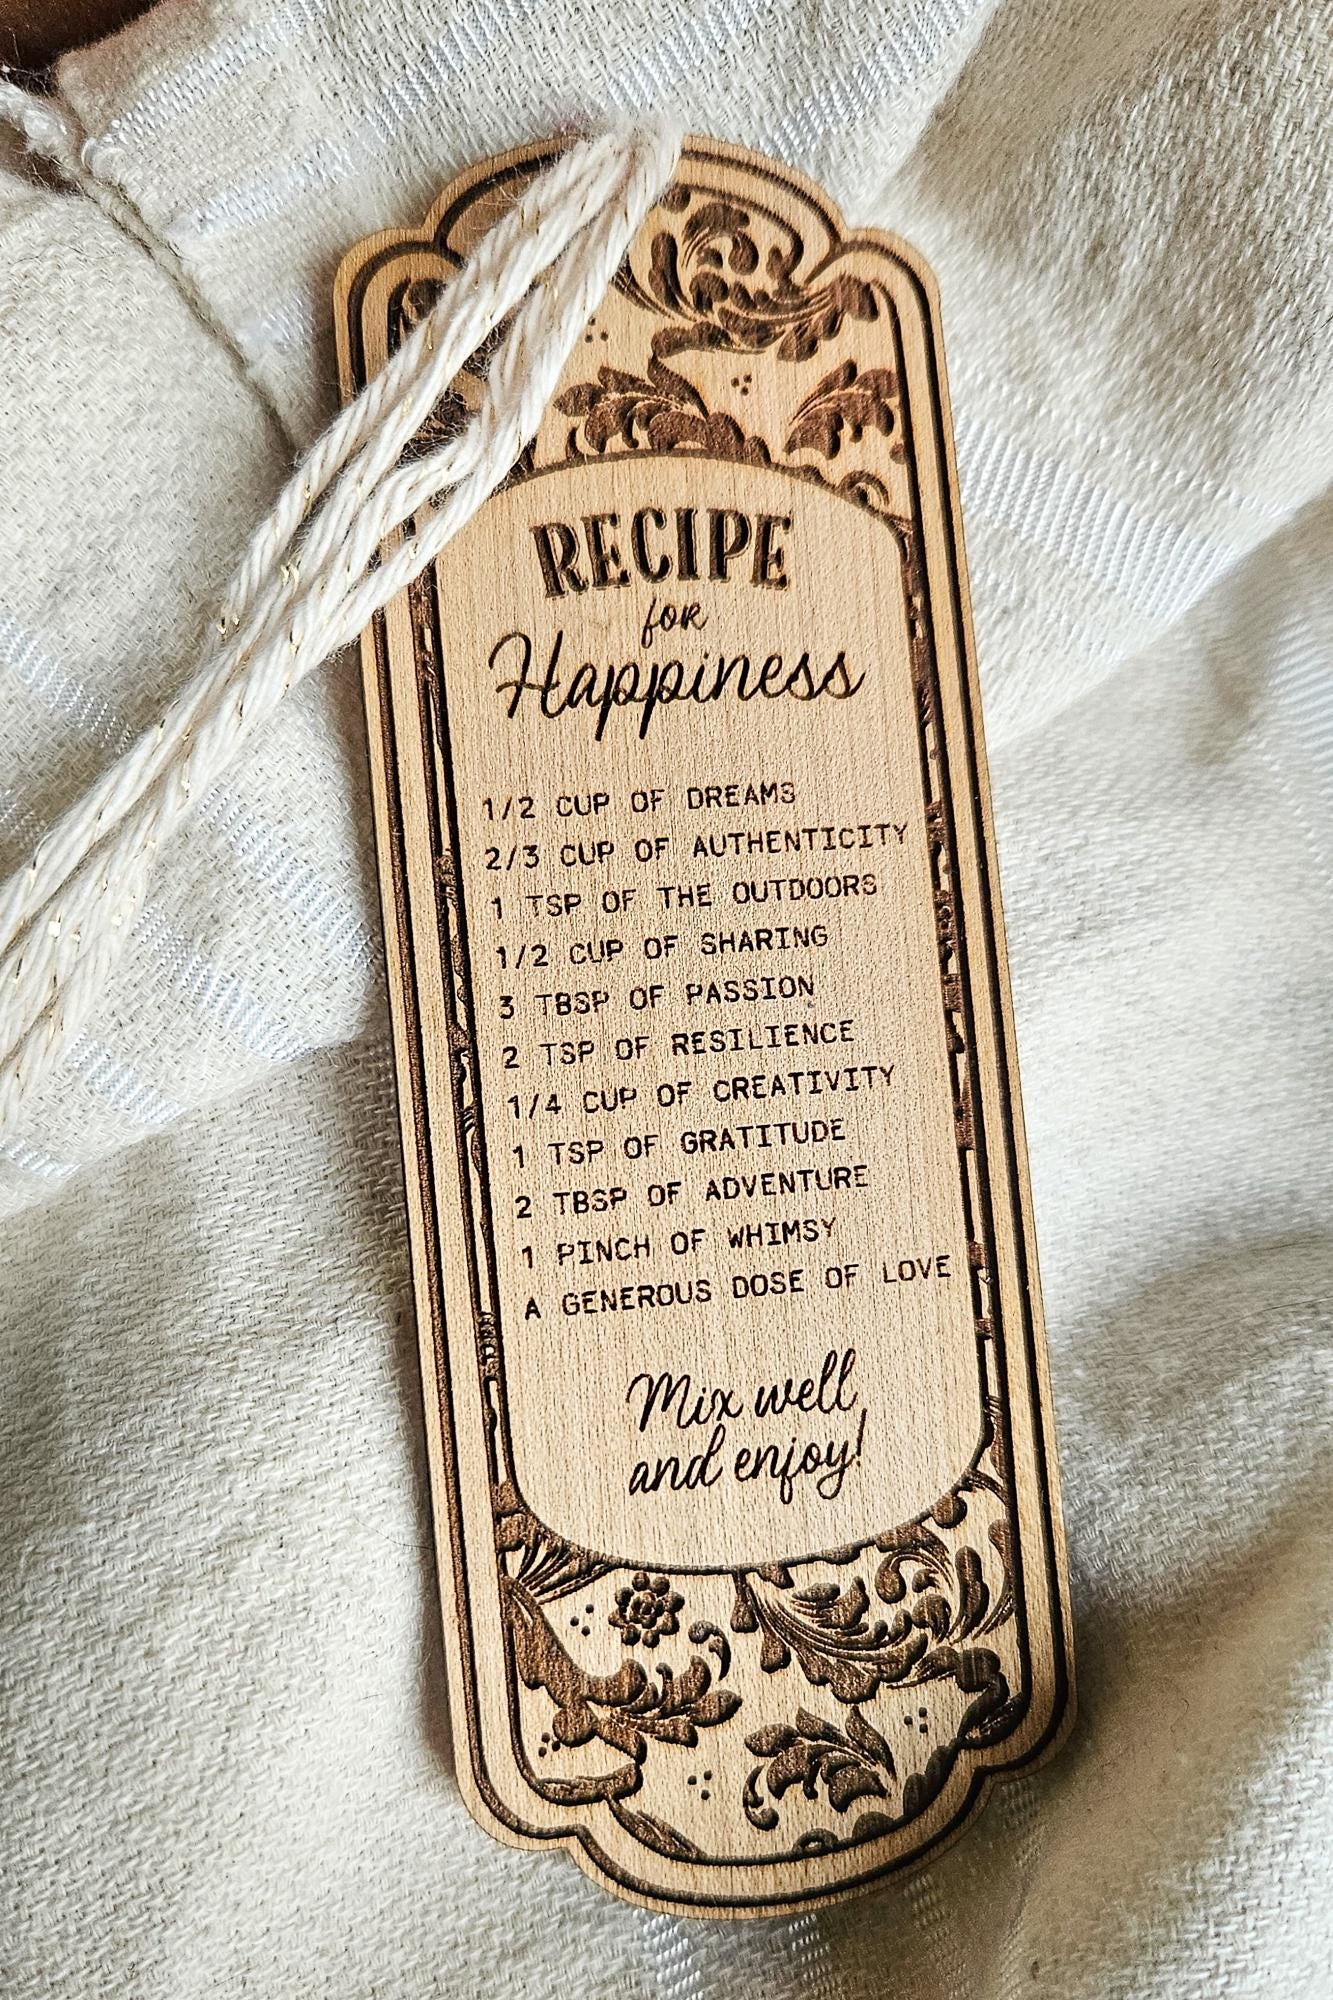 RECIPE
for
Happiness
1/2 CUP OF DREAMS
2/3 CUP OF AUTHENTICITY
1 TSP OF THE OUTDOORS
1/2 CUP OF SHARING
3 TBSP OF PASSION
2 TSP OF RESILIENCE
1/4 CUP OF CREATIVITY
1 TSP OF GRATITUDE
2 TBSP OF ADVENTURE
1 PINCH OF WHIMSY
A GENEROUS DOSE OF LOVE
Mix well
and enjoy!